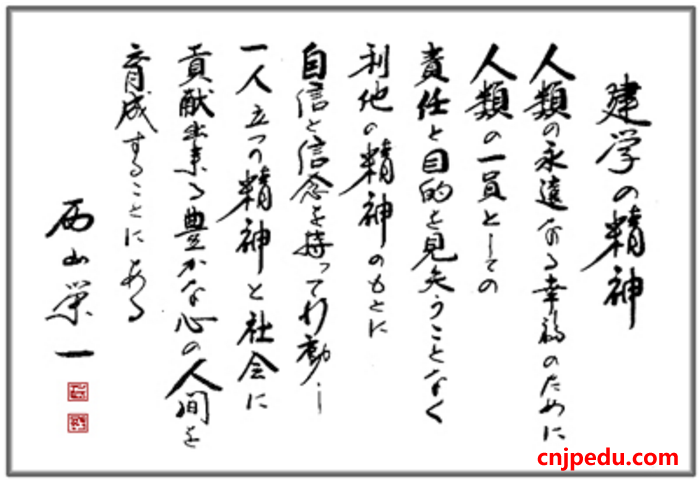 建学の精神
人類の永遠なる幸福のために
人類の一員としての
責任と目的を見失うことなく
利他の精神のもとに
自信と信念を持って行動し
一人立つの精神と社会に
貢献出来る豊かな心の人間を
育成することにある
西山栄一
cnjpedu.com